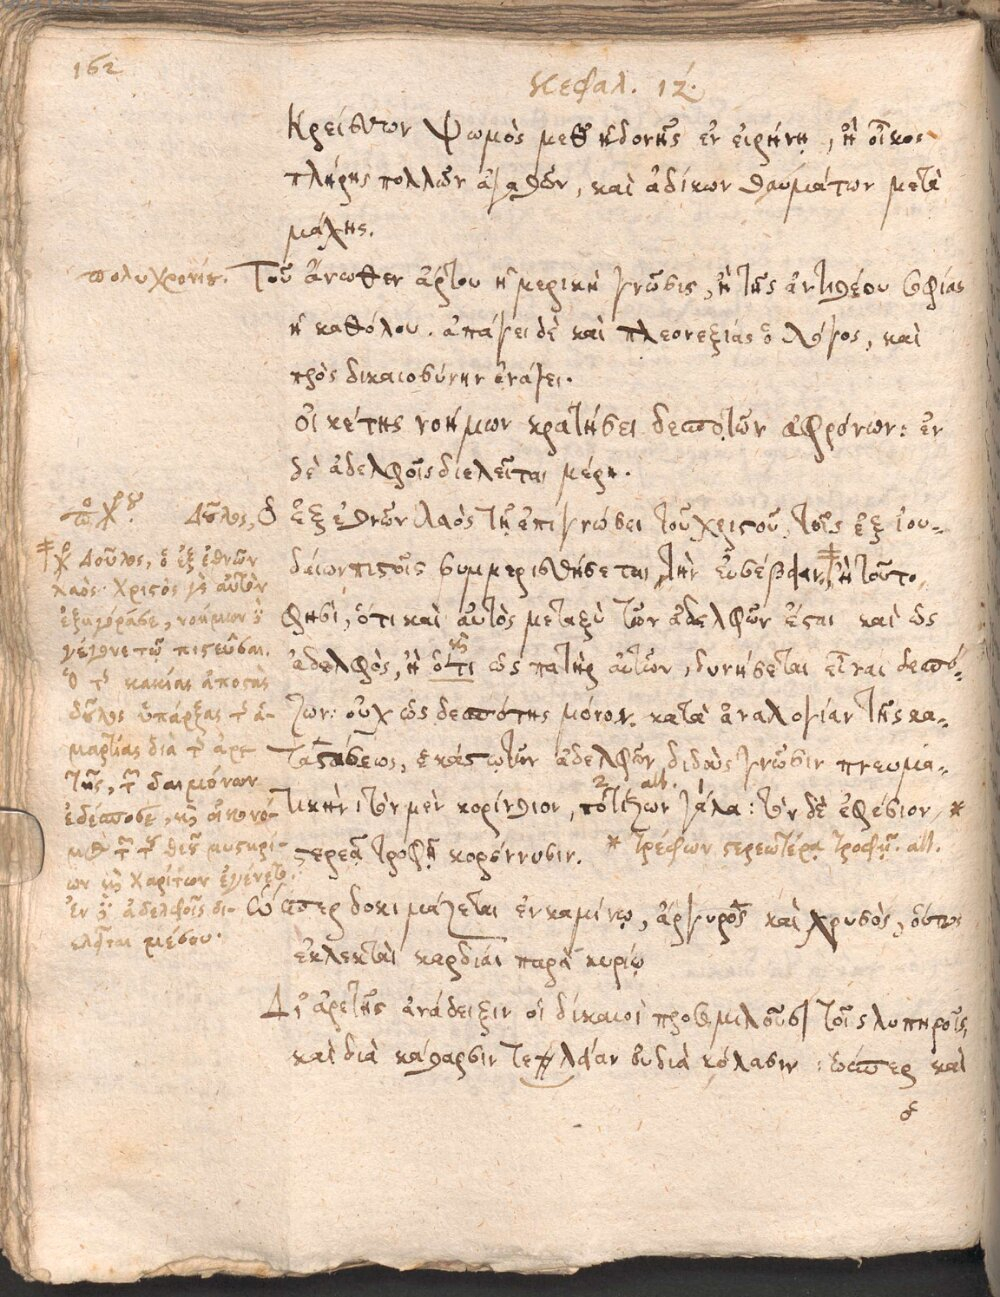 162
κεφαλ. ιζ.
Κρείσσων ψωμὸς μεθ' ἡδονῆς ἐν εἰρήνῃ, ἢ οἶκος
πλήρης πολλῶν ἀγαθῶν, καὶ ἀδίκων θαυμάτων μετὰ
μάχης.
πολυχρονίου. Τοῦ ἄνωθεν ἄρτου ἡ μερικὴ γνῶσις, ἢ τῆς ἀντιθέου σοφίας
ἡ καθόλου. ἀπάγει δὲ καὶ πλεονεξίας ὁ λόγος, καὶ
πρὸς δικαιοσύνην ἐνάγει.
οἰκέτης νοήμων κρατήσει δεσποτῶν ἀφρόνων: ἐν
δὲ ἀδελφοῖς διελεῖται μέρη.
Δοῦλος, ὁ ἐξ ἐθνῶν λαὸς τῇ ἐπιγνώσει τοῦ χριστοῦ, τοῖς ἐξ ἰου-
δαίων πιστοῖς συμμερισθήσεται τὴν εὐσέβειαν, ἢ τοῦτο
φησὶ, ὅτι καὶ αὐτὸς μεταξὺ τῶν ἀδελφῶν ἔσται καὶ ὡς
ἀδελφὸς, ἢ ὅτι ὡς πατὴρ αὐτῶν, δυνήσεται εἶναι δεσπό-
ζων: οὐχ ὡς δεσπότης μόνον. κατὰ ἀναλογίαν τῆς κα-
ταστάσεως, ἑκάστῳ τῶν ἀδελφῶν διδοὺς γνῶσιν πνευμα-
τικὴν: τὸν μὲν κορίνθιον, ποτίζων γάλα: τὸν δὲ ἐφέσιον *
στερεᾷ τροφῇ κορέννυσιν. * τρέφων στερεωτέρᾳ τροφῇ. all.
‡ Δοῦλος, ὁ ἐξ ἐθνῶν
λαὸς. Χριστὸς γὰρ αὐτὸν
ἐξηγόρασε, νοήμων
γέγονε τῷ πιστεῦσαι.
Ὁ τ κακίας ἀποστὰς
δοῦλος ὑπάρξας τ ἁ-
μαρτίας διὰ τ ἀρε-
τῆς, τ δαιμόνων
ἐδέσποσε, κ οἰκονό-
τ θεοῦ μυστηρί-
ων κ χαρίτων ἐγένετο.
ἐν ἀδελφοῖς δι-
ελεῖται μέσου.
Ὥσπερ δοκιμάζεται ἐν καμίνῳ, ἄργυρος καὶ χρυσὸς, οὕτως
ἐκλεκταὶ καρδίαι παρὰ κυρίῳ
Δι' ἀρετῆς ἀνάδειξιν οἱ δίκαιοι προσομιλοῦσι τοῖς λυπηροῖς,
καὶ διὰ κάθαρσιν οὐ διὰ κόλασιν: ὥσπερ καὶ
ὁ